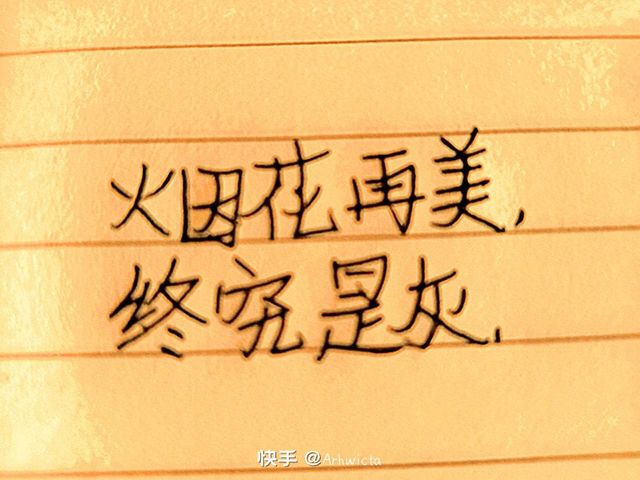 烟花再美,
终究是灰.
快手 @Arhwicta